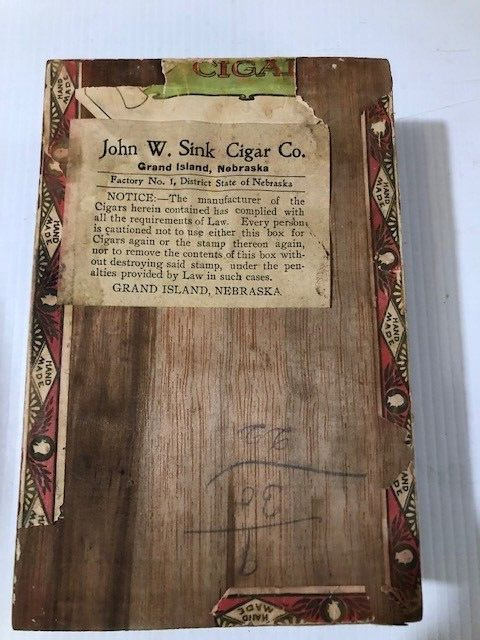 CIGA
John W. Sink Cigar Co.
Grand Island, Nebraska
Factory No. 1, District State of Nebraska
NOTICE:—The manufacturer of the
Cigars herein contained has complied with
all the requirements of Law. Every person
is cautioned not to use either this box for
Cigars again or the stamp thereon again,
nor to remove the contents of this box with-
out destroying said stamp, under the pen-
alties provided by Law in such cases.
GRAND ISLAND, NEBRASKA
HAND MADE
HAND MADE
HAND MADE
HAND MADE
HAND MADE
HAND MADE
HAND MADE